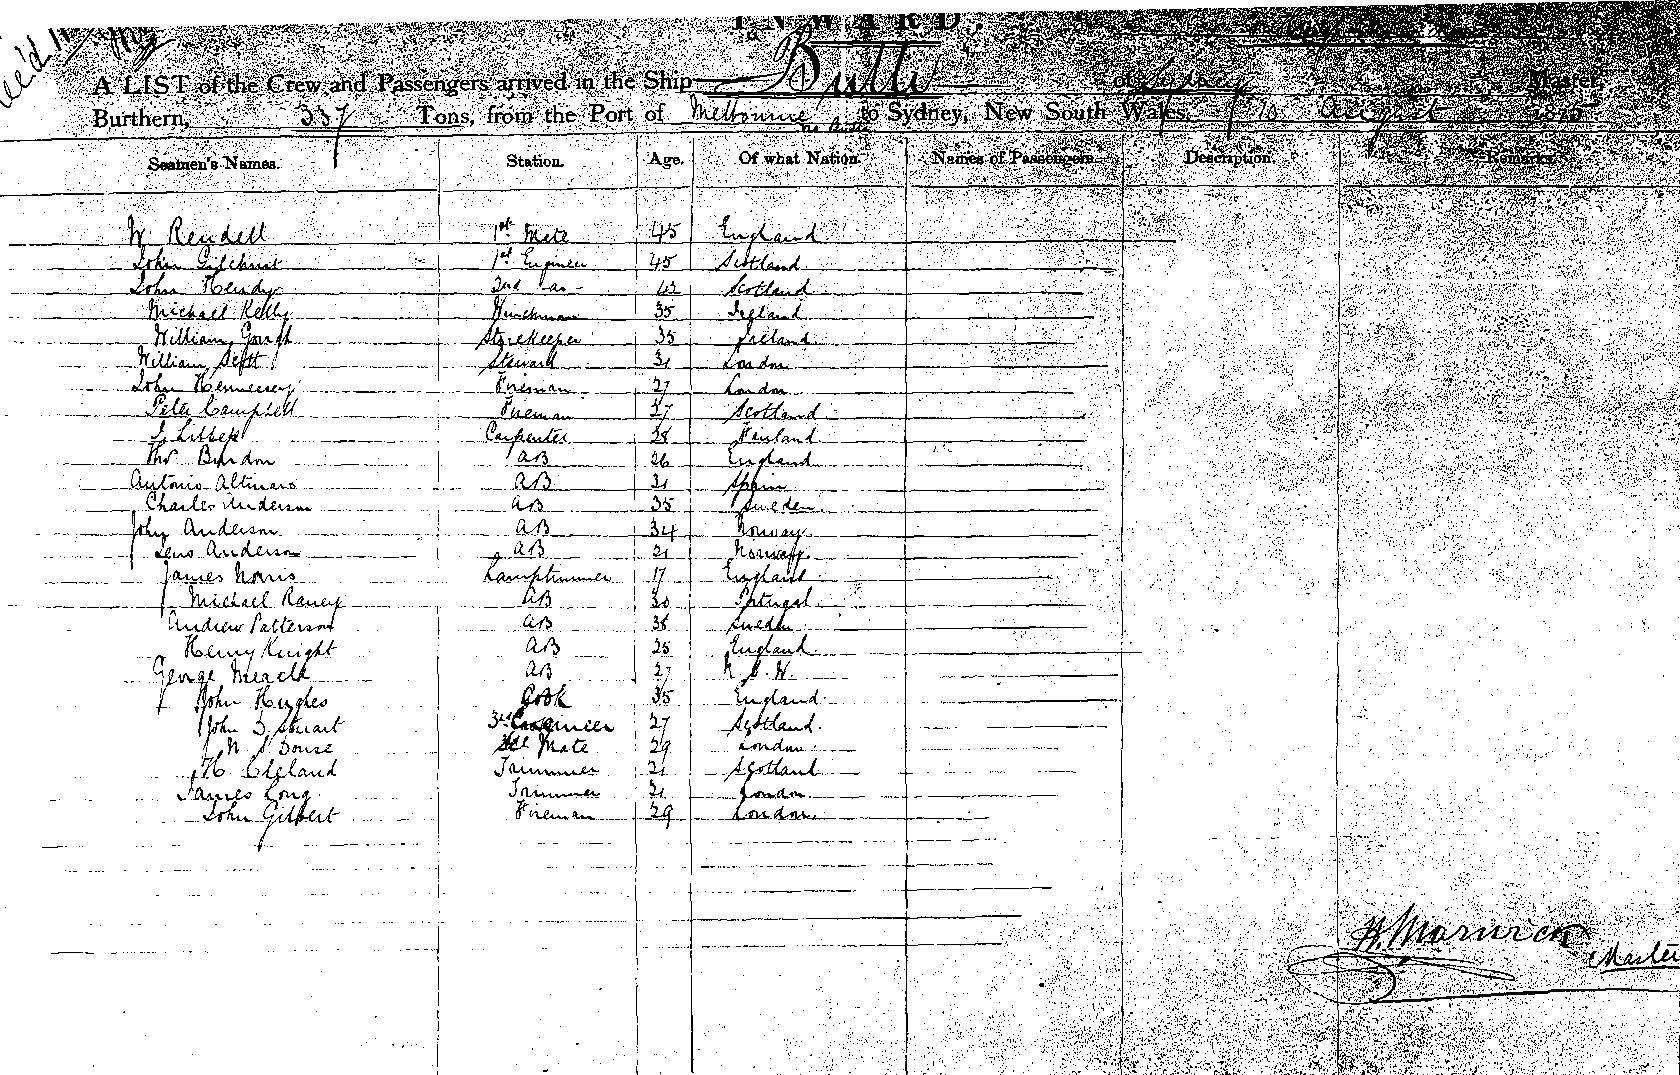 INWARD.
A LIST of the Crew and Passengers arrived in the Ship of Master,
Burthern, 337 Tons, from the Port of Melbourne to Sydney, New South Wales, August
Seamen's Names. Station. Age. Of what Nation. Names of Passengers. Description. Remarks.
W Rendell 1st Mate 45 England
John Gilchrist 1st Engineer 45 Scotland
John Hendy 2nd Scotland
Michael Kelly 35 Ireland
William Gough Storekeeper 35 Ireland
William Scott Steward London
John Hennessey Fireman 27 London
Peter Campbell Fireman Scotland
Carpenter 28
Thos Burdon AB 26 England
Antonio AB Spain
Charles Anderson AB 35 Sweden
John Anderson AB 34 Norway
Jens Anderson AB 21 Norway
James Norris Lamptrimmer 17 England
Michael Raney AB 30 Portugal
Andrew Patterson AB 38 Sweden
Henry Knight AB 25 England
George AB 27 N. S. W.
John Hughes Cook 35 England
John Stuart 3rd Engineer 27 Scotland
Mate 29 London
Cleland Trimmer 21 Scotland
James Long Trimmer London
John Gilbert Fireman 29 London
Marwick
Master